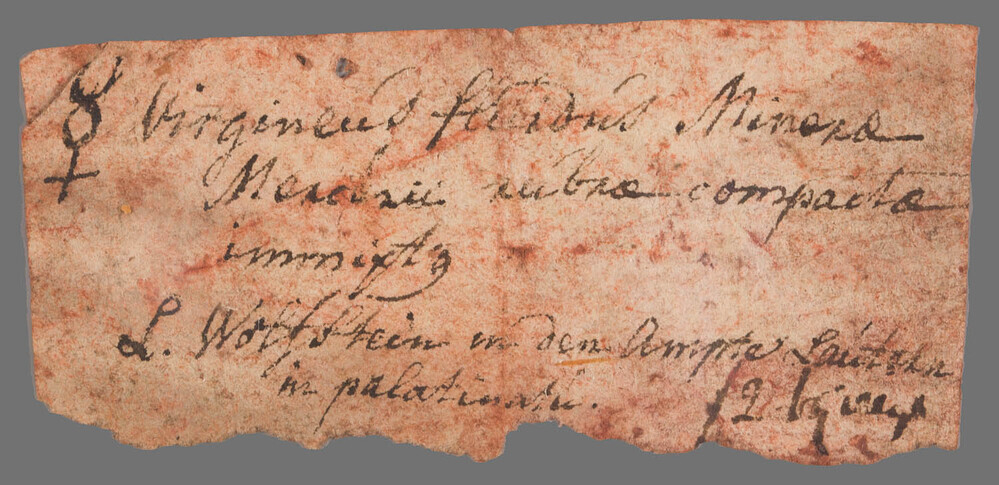 ☿ Virgineus fluidus Mineræ
Mercurii rubræ compactæ
immixtq
L. Wolffstein in dem Ampte Lautern
in palatinatu.